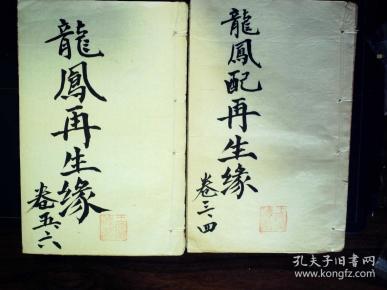 龍鳳配再生缘
卷三、四
龍鳳再生缘
卷五、六
孔夫子旧书网
www.kongfz.com